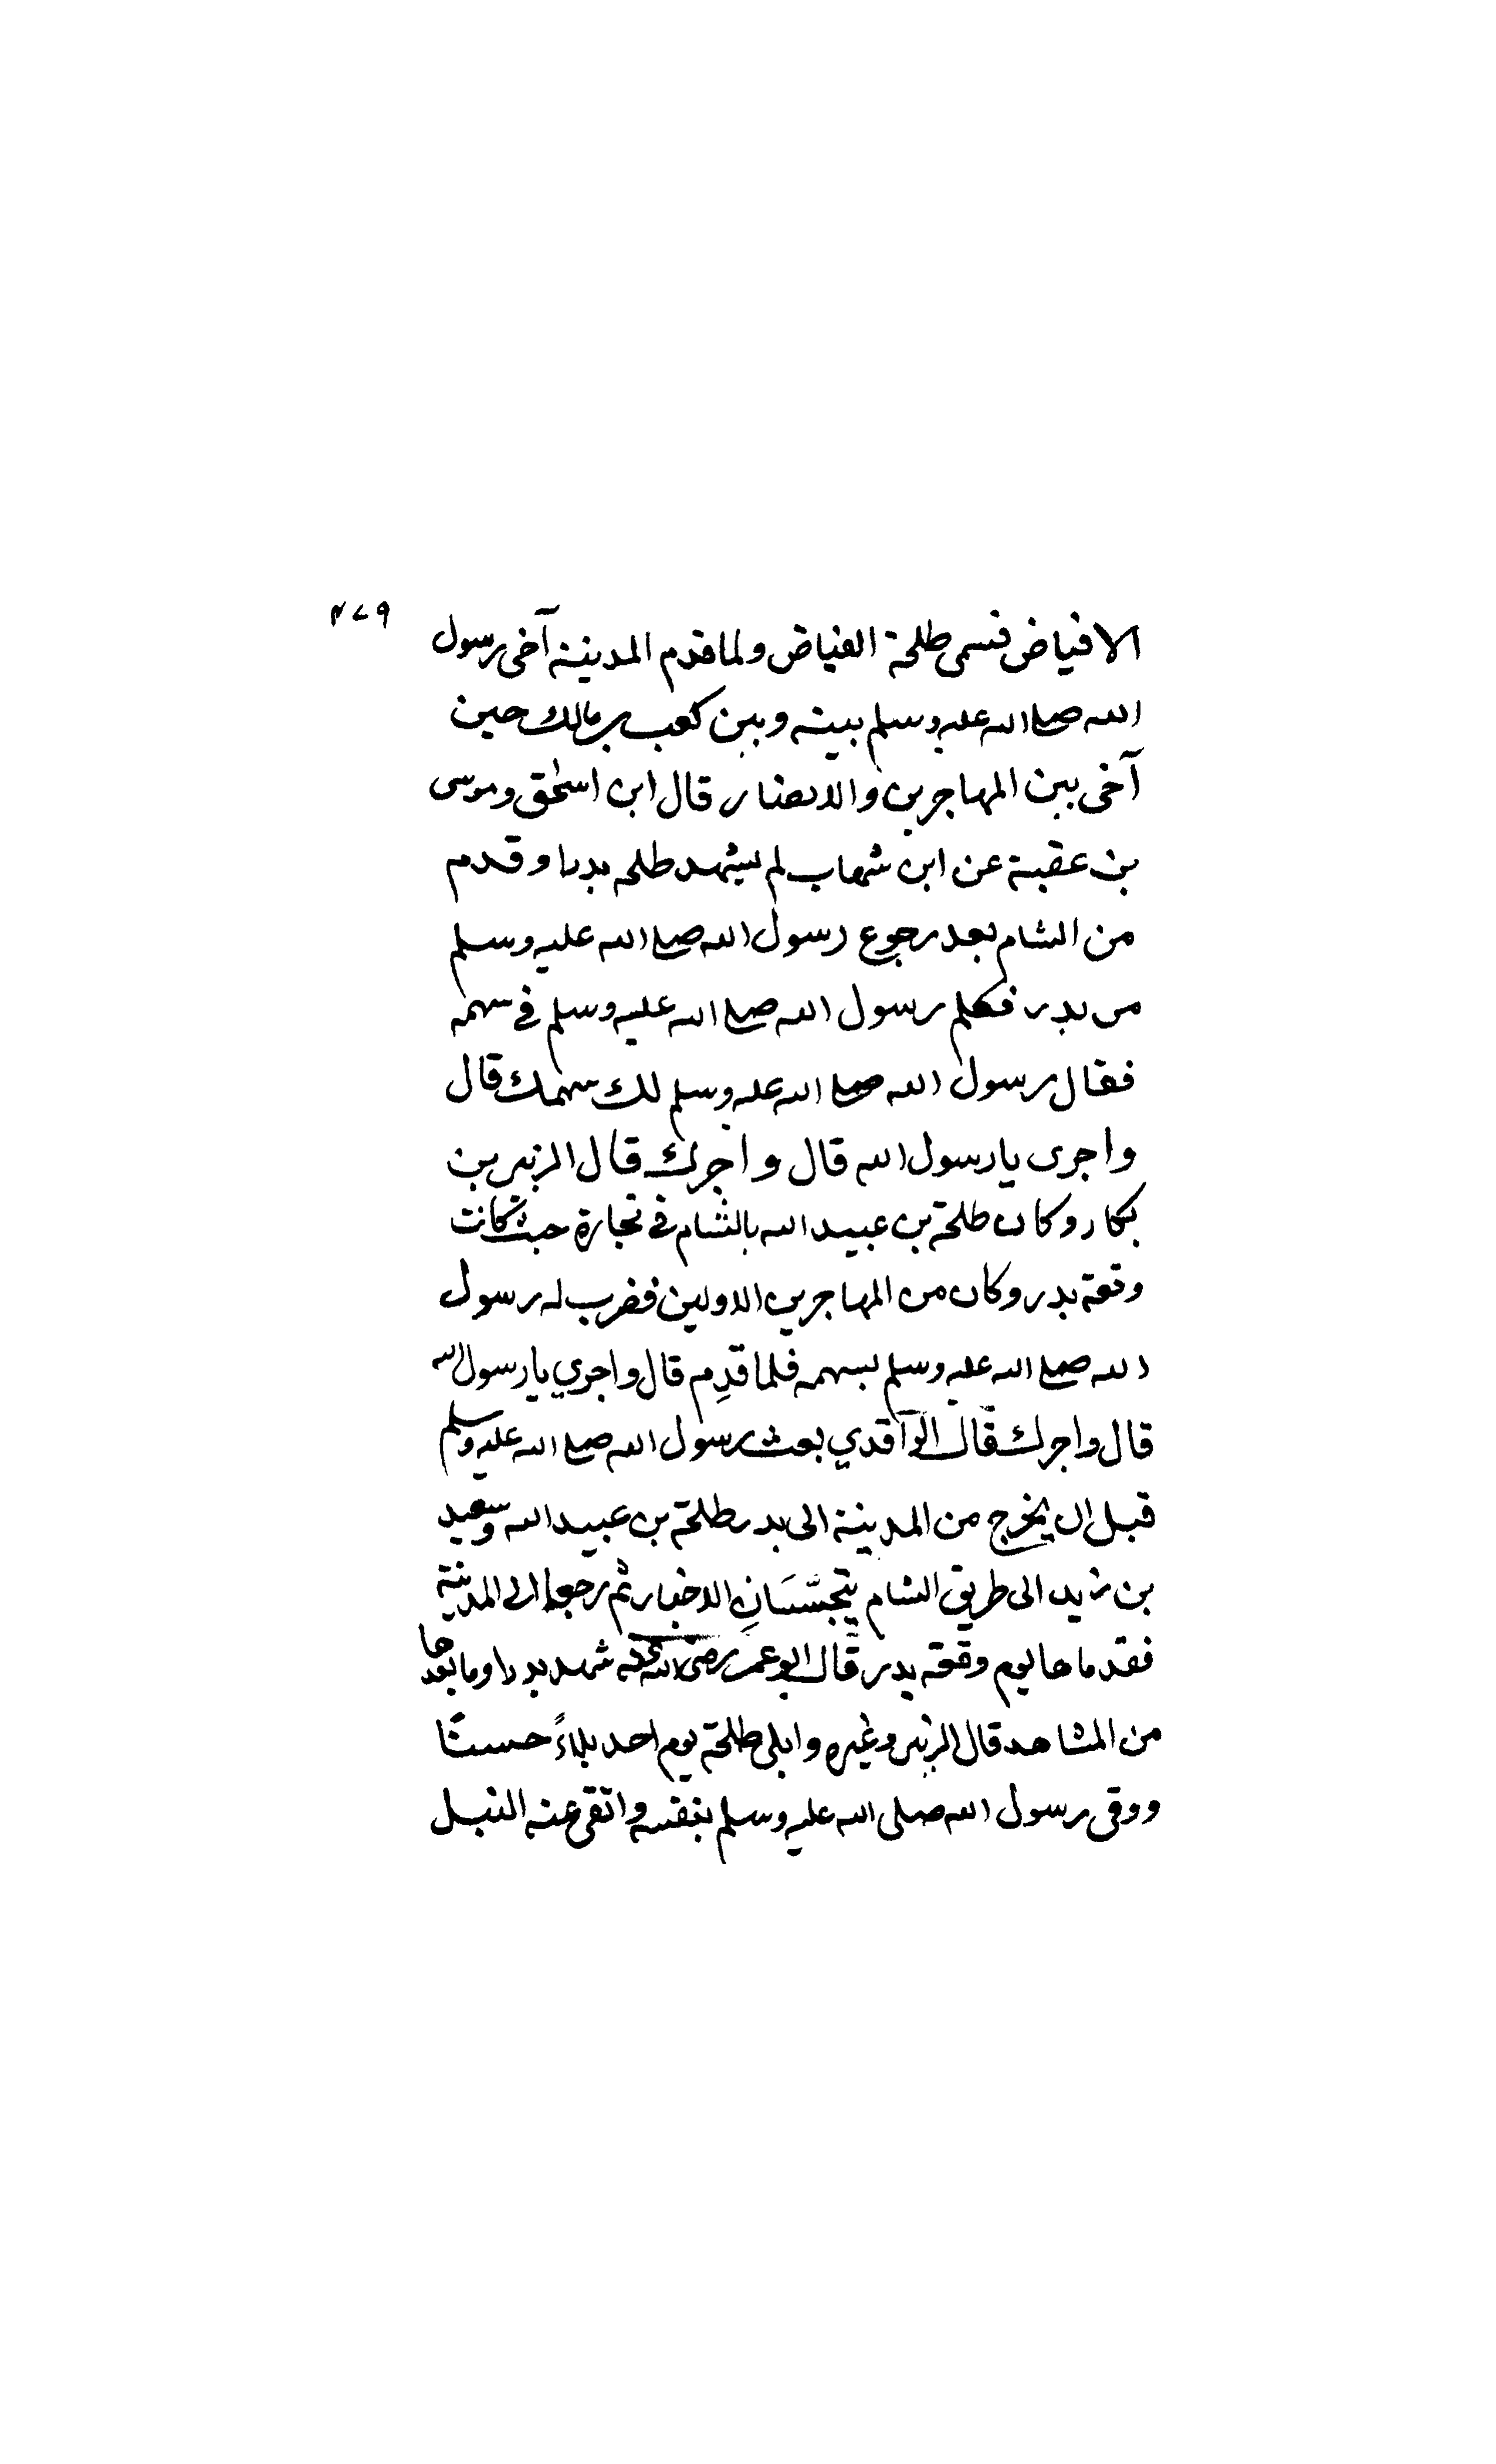 ٤٧٩
الا فياض فسمى طلحة الفياض ولما قدم المدينة آخى رسول
الله صلى الله عليه وسلم بينه وبين كعب بن مالك حين
آخى بين المهاجرين والانصار قال ابن اسحٰق وموسى
بن عقبة عن ابن شهاب لم يشهد طلحه بدرا وقدم
من الشام بعد رجوع رسول الله صلى الله عليه وسلم
من بدر فكلم رسول الله صلى الله عليه وسلم في سهمه
فقال رسول الله صلى الله عليه وسلم لك سهمك قال
واجرى يا رسول الله قال واجرك قال الزبير بن
بكار وكان طلحة بن عبيد الله بالشام في تجارة حيث كانت
وقعة بدر وكان من المهاجرين الاولين فضرب له رسول
الله صلى الله عليه وسلم بسهمه فلما قدِم قال واجري يا رسول الله
قال واجرك قال الواقدي بعث رسول الله صلى الله عليه وسلم
قبل ان يخرج من المدينة الى بدر طلحة بن عبيد الله وسعيد
بن زيد الى طريق الشام يتجسَّسَانِ الاخبار ثم رجعا الى المدينة
فقدماها يوم وقعه بدر قال ابو عمر رضى الله عنه شهد بدرا وما بعدها
من المشاهد قال الزبير وغيره وابلى طلحة يوم احد بلاءً حسنًا
ووقى رسول الله صلى الله عليه وسلم بنفسه واتقى عنه النبل